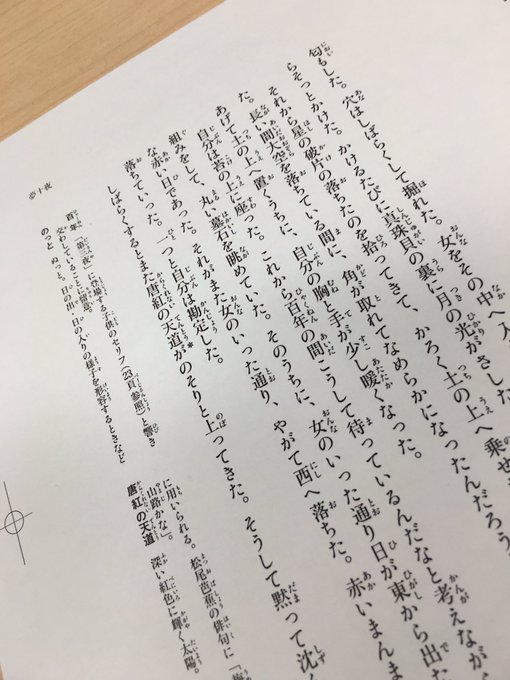 匂もした。穴はしばらくして掘れた。女をその中へ
らそっとかけた。かけるたびに真珠貝の裏に月の光がさした
それから星の破片の落ちたのを拾ってきて、かろく土の上へ乗せ
た。長い間大空を落ちている間に、角が取れてなめらかになったんだろう
あげて土の上へ置くうちに、自分の胸と手が少し暖くなった。
自分は苔の上に座った。これから百年の間こうして待っているんだなと考えなが
組みをして、丸い墓石を眺めていた。そのうちに、女のいった通り日が東から出た
な赤い日であった。それがまた女のいった通り、やがて西へ落ちた。赤いまんま
落ちていった。一つと自分は勘定した。
しばらくするとまた唐紅の天道*がのそりと上ってきた。そうして黙って沈
百年 「第三夜」に登場する子供のセリフ(23頁参照)と響き
交わしていることに留意。
のっと ぬっと。日の出、日の入りの様子を形容するときなど
に用いられる。松尾芭蕉の俳句に「梅
山路かな」。
唐紅の天道 深い紅色に輝く太陽。
夢十夜